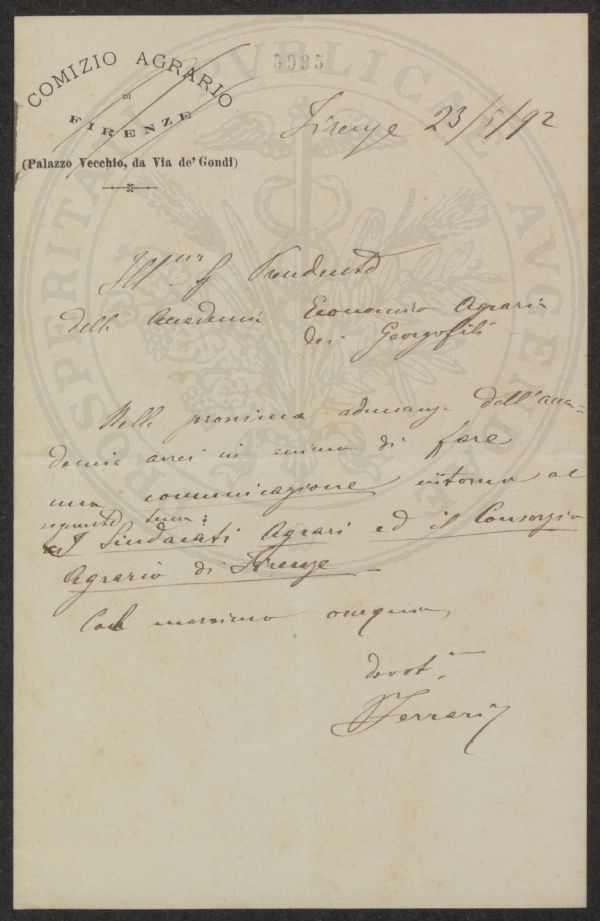 5995
COMIZIO AGRARIO
DI
FIRENZE
(Palazzo Vecchio, da Via de' Gondi)
Firenze 23/5/92
Ill.mo Sg Presidente
dell Accademia Economico Agraria
dei Georgofili
Nella prossima adunanza dell'acca=
demia avrei in animo di fare
una comunicazione intorno al
seguente tema:
I Sindacati Agrari ed il Consorzio
Agrario di Firenze
Col massimo ossequio,
devot.mo
Ferrari
PROSPERITATI PUBLICAE AUGENDAE